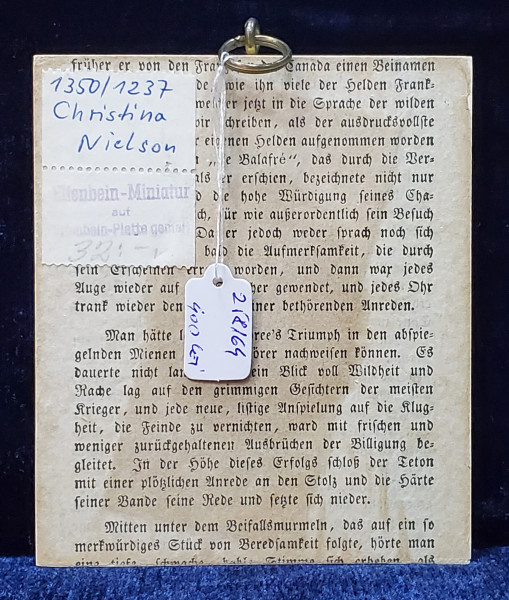 1350/1237
Christina
Nielson
Elfenbein-Miniatur
auf
Elfenbein-Platte gemalt
32:-
218/64
400 lei
früher er von den Fra Canada einen Beinamen
de, wie ihn viele der Helden Frank-
welcher jetzt in die Sprache der wilden
wir schreiben, als der ausdrucksvollste
er eignen Helden aufgenommen worden
„le Balafré“, das durch die Ver-
als er erschien, bezeichnete nicht nur
d die hohe Würdigung seines Cha-
ch, für wie außerordentlich sein Besuch
Da er jedoch weder sprach noch sich
bald die Aufmerksamkeit, die durch
sein Erscheinen err worden, und dann war jedes
Auge wieder auf her gewendet, und jedes Ohr
trank wieder den iner bethörenden Anreden.
Man hätte ree's Triumph in den abspie-
gelnden Mienen örer nachweisen können. Es
dauerte nicht lan ein Blick voll Wildheit und
Rache lag auf den grimmigen Gesichtern der meisten
Krieger, und jede neue, listige Anspielung auf die Klug-
heit, die Feinde zu vernichten, ward mit frischen und
weniger zurückgehaltenen Ausbrüchen der Billigung be-
gleitet. In der Höhe dieses Erfolgs schloß der Teton
mit einer plötzlichen Anrede an den Stolz und die Härte
seiner Bande seine Rede und setzte sich nieder.
Mitten unter dem Beifallsmurmeln, das auf ein so
merkwürdiges Stück von Beredsamkeit folgte, hörte man
eine tiefe, schwache, hohle Stimme sich erheben, als